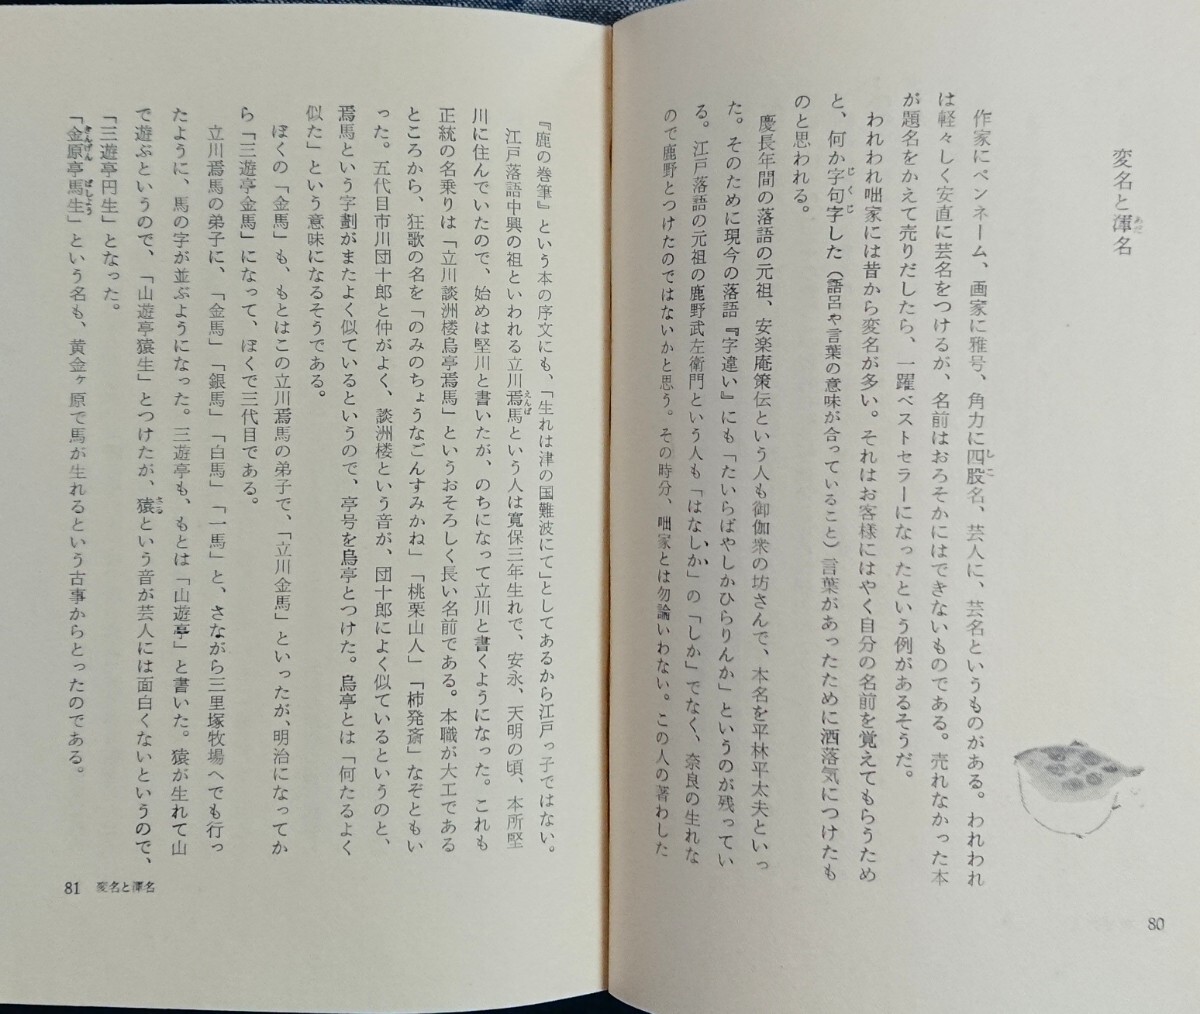 変名と渾名
あだ
作家にペンネーム、画家に雅号、角力に四股名、芸人に、芸名というものがある。われわれ
しこ
は軽々しく安直に芸名をつけるが、名前はおろそかにはできないものである。売れなかった本
が題名をかえて売りだしたら、一躍ベストセラーになったという例があるそうだ。
われわれ咄家には昔から変名が多い。それはお客様にはやく自分の名前を覚えてもらうため
と、何か字句字した(語呂や言葉の意味が合っていること)言葉があったために洒落気につけたも
じくじ
のと思われる。
慶長年間の落語の元祖、安楽庵策伝という人も御伽衆の坊さんで、本名を平林平太夫といっ
た。そのために現今の落語『字違い』にも「たいらばやしかひらりんか」というのが残ってい
る。江戸落語の元祖の鹿野武左衛門という人も「はなしか」の「しか」でなく、奈良の生れな
ので鹿野とつけたのではないかと思う。その時分、咄家とは勿論いわない。この人の著わした
80
『鹿の巻筆』という本の序文にも、「生れは津の国難波にて」としてあるから江戸っ子ではない。
江戸落語中興の祖といわれる立川焉馬という人は寛保三年生れで、安永、天明の頃、本所竪
えんば
川に住んでいたので、始めは竪川と書いたが、のちになって立川と書くようになった。これも
正統の名乗りは「立川談洲楼烏亭焉馬」というおそろしく長い名前である。本職が大工である
ところから、狂歌の名を「のみのちょうなごんすみかね」「桃栗山人」「柿発斎」なぞともい
った。五代目市川団十郎と仲がよく、談洲楼という音が、団十郎によく似ているというのと、
焉馬という字劃がまたよく似ているというので、亭号を烏亭とつけた。烏亭とは「何たるよく
似た」という意味になるそうである。
ぼくの「金馬」も、もとはこの立川焉馬の弟子で、「立川金馬」といったが、明治になってか
ら「三遊亭金馬」になって、ぼくで三代目である。
立川焉馬の弟子に、「金馬」「銀馬」「白馬」「一馬」と、さながら三里塚牧場へでも行っ
たように、馬の字が並ぶようになった。三遊亭も、もとは「山遊亭」と書いた。猿が生れて山
で遊ぶというので、「山遊亭猿生」とつけたが、猿という音が芸人には面白くないというので、
さる
「三遊亭円生」となった。
「金原亭馬生」という名も、黄金ヶ原で馬が生れるという古事からとったのである。
きんげん ばしょう
81 変名と渾名